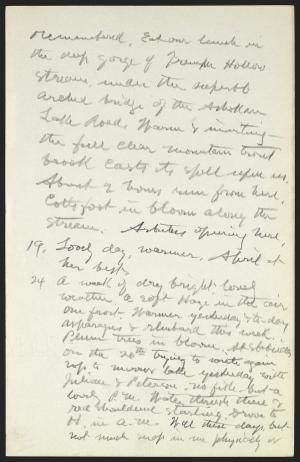 remembered. Eat our lunch in
the deep gorge of Tremper Hollow
stream, under the superb
arched bridge of the Ashokan
Lake Road. Warm & inviting —
the full clear mountain trout
brook casts its spell upon us.
About 2 hours run from here.
Coltsfoot in bloom along the
stream. Arbutus opening here.
19. Lovely day, warmer. April at
her best.
24 A week of dry bright lovely
weather, a soft haze in the air
one frost. Warmer yesterday & to-day
asparagus & rhubarb this week.
Plum trees in bloom. At Slabsides
on the 20th trying to write again
up to mirror lake yesterday with
Julian & Peterson, no fish but a
lovely P.M. Water thrush there &
red shouldered starling. Drove to
H. in a.m. Well these days, but
not much snap in me physically or